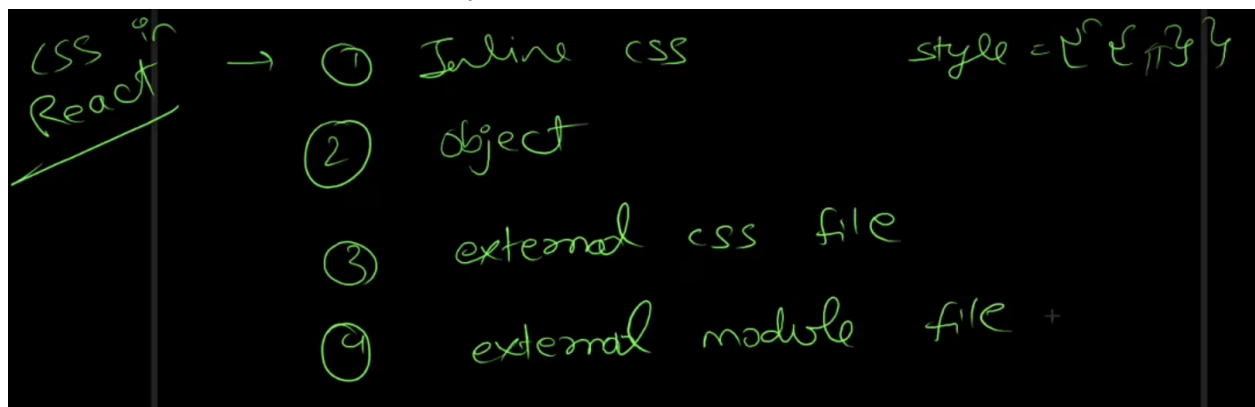 CSS in
React → ① Inline css style = {{ }}
② object
③ external css file
④ external module file